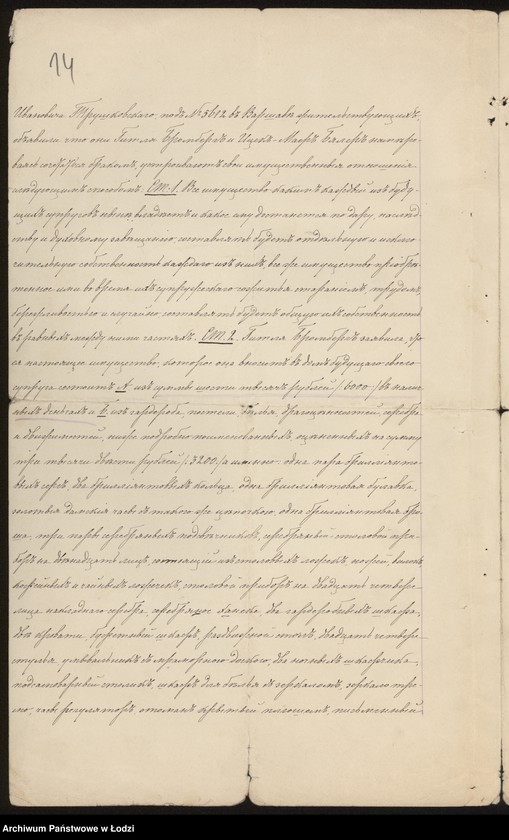 14
Ивановича Трушковского, подъ № 5612 въ Варшавѣ жительствующимъ,
объявили что они Гитля Бромбергъ и Ицекъ-Маеръ Балеръ
вая бракомъ, свои имущественныя отношенія
слѣдующимъ способомъ. Ст. 1. Все имущество какимъ каждый изъ буду-
щихъ супруговъ нынѣ владѣетъ и какое ему достанется по дару, наслѣд-
ству и духовному завѣщанію, составлять будетъ отдѣльную и исклю-
чительную собственность каждаго изъ нихъ, все же имущество пріобрѣ-
тенное ими во время ихъ супружескаго сожитья стараніемъ, трудомъ,
бережливостью и случайно составлять будетъ общую ихъ собственность
въ равныхъ между ними частяхъ. Ст. 2. Гитля Бромбергъ заявила, что
ея настоящее имущество, которое она вноситъ въ домъ будущаго своего
супруга состоитъ А. изъ суммы шести тысячъ рублей /6000/ въ налич-
ныхъ деньгахъ и Б. изъ гардероба, постели, бѣлья, драгоцѣнностей, серебра
и движимостей, ниже подробно поименованныхъ, оцѣненныхъ на сумму
три тысячи двѣсти рублей /3200/ а именно: одна пара брилліанто-
выхъ серегъ, два брилліантовыхъ кольца, одна брилліантовая булавка,
золотые дамскіе часы съ такою же цѣпочкою, одна брилліантовая бро-
ша, три пары серебряныхъ подсвѣчниковъ, серебряный столовый при-
боръ на двѣнадцать лицъ, состоящій изъ столовыхъ ложекъ, ножей, вилокъ
и чайныхъ ложечекъ, столовый приборъ на двадцать четыре
лица накладнаго серебра, два гардеробныхъ шкафа,
двѣ кровати, буфетный шкафъ, раздвижной столъ, двадцать четыре
стула, умывальникъ съ мраморною доскою, два ночныхъ шкафчика,
столикъ, шкафъ для бѣлья съ зеркаломъ, зеркало трю-
мо, часы регуляторъ, оттоманъ крытый плюшемъ, письменный
Archiwum Państwowe w Łodzi